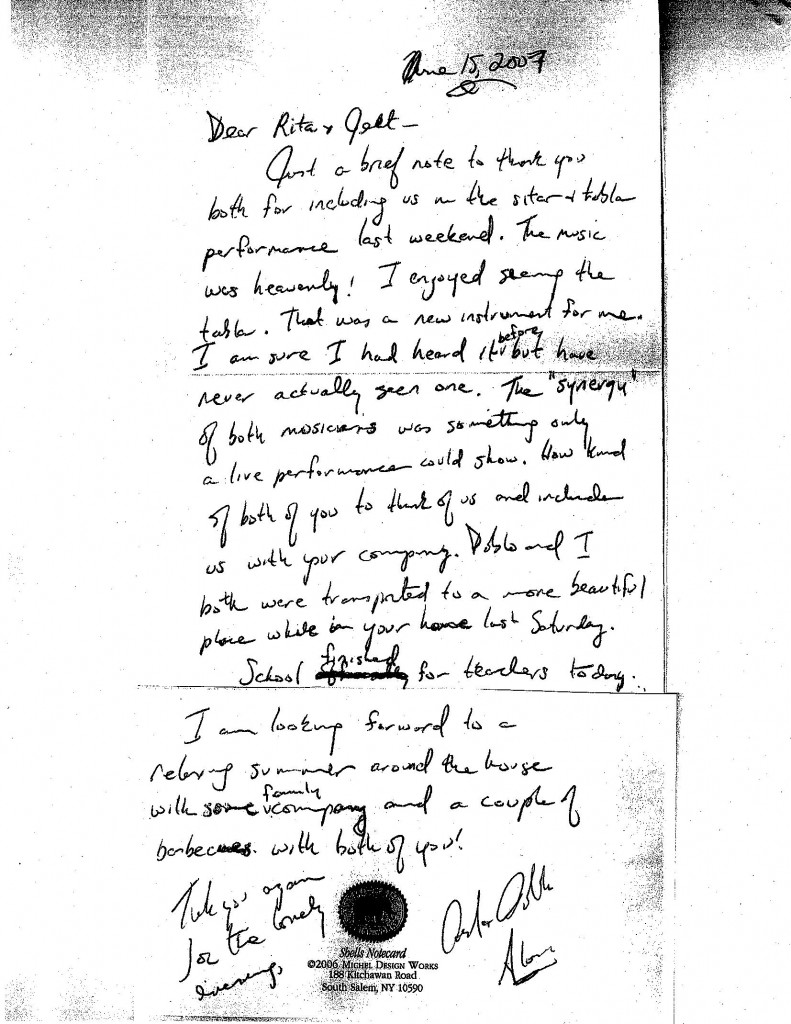 June 15, 2007
Dear Rita +
Just a brief note to thank you
both for including us in the sitar + tabla
performance last weekend. The music
was heavenly! I enjoyed seeing the
tabla. That was a new instrument for me.
I am sure I had heard it before but have
never actually seen one. The "synergy"
of both musicians was something only
a live performance could show. How kind
of both of you to think of us and include
us with your company. Pablo and I
both were transported to a more beautiful
place while in your house last Saturday.
School finished for teachers today.
I am looking forward to a
relaxing summer around the house
with some family company and a couple of
barbecues with both of you!
Thank you again
for the lovely
evening
Shells Notecard
©2006 Michel Design Works
188 Kitchawan Road
South Salem, NY 10590